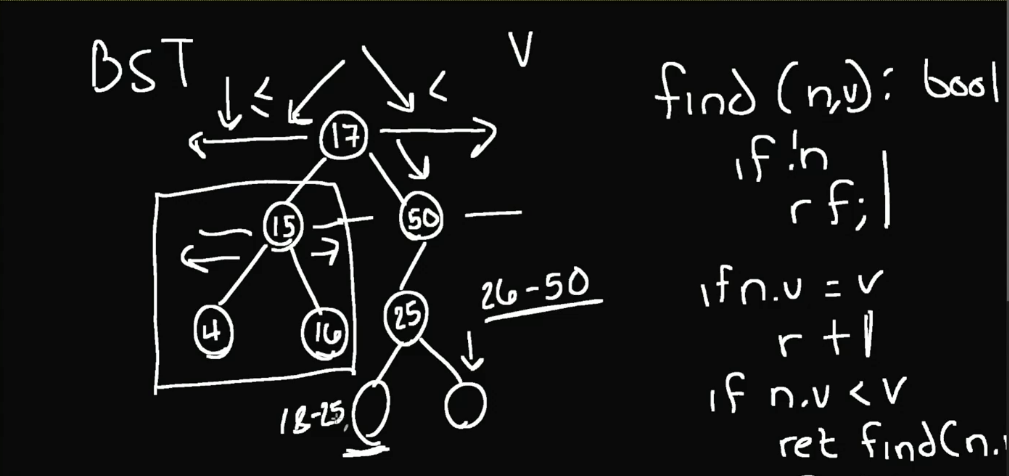 BST
V
≤
<
17
15
50
4
16
25
26-50
18-25
find (n,v): bool
if !n
r f;
if n.v = v
r t
if n.v < v
ret find(n.